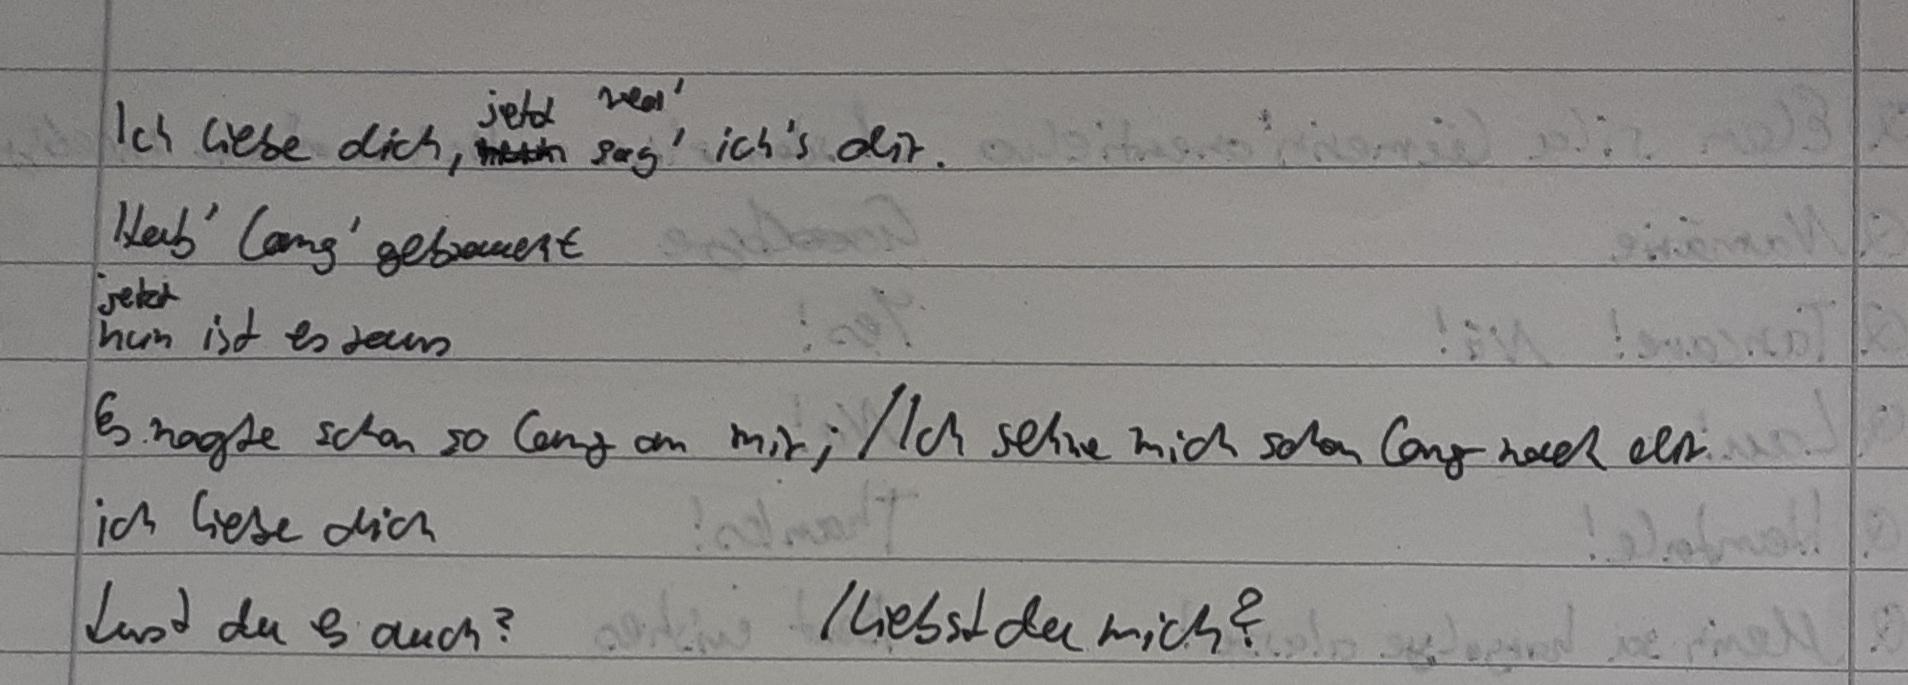 Ich liebe dich, jetzt sag' ich's dir.
Hab' lang' gebraucht
jetzt
nun ist es raus
Es nagte schon so lang an mir; / Ich sehne mich schon lang nach dir
ich liebe dich
Tust du es auch? / Liebst du mich?